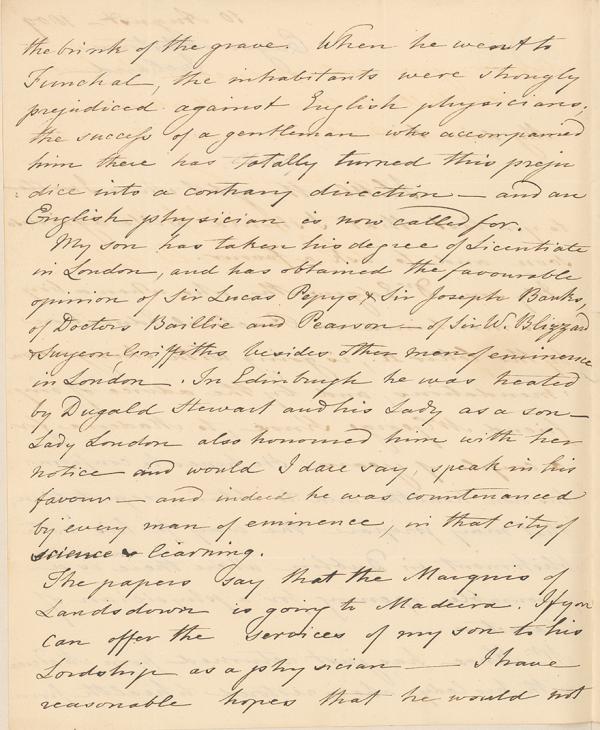 the brink of the grave. When he went to
Funchal, the inhabitants were strongly
prejudiced against English physicians;
the success of a gentleman who accompanied
him there has totally turned this preju
dice into a contrary direction — and an
English physician is now called for.
My son has taken his degree of Licentiate
in London, and has obtained the favourable
opinion of Sir Lucas Pepys & Sir Joseph Banks,
of Doctors Baillie and Pearson — of Sir W. Blizzard
& Surgeon Griffiths besides other men of eminence
in London. In Edinburgh he was treated
by Dugald Stewart and his Lady as a son —
Lady London also honoured him with her
notice and would I dare say, speak in his
favour — and indeed he was countenanced
by every man of eminence, in that city of
science & learning.
The papers say that the Marquis of
Landsdown is going to Madeira. If you
can offer the services of my son to his
Lordship as a physician — I have
reasonable hopes that he would not